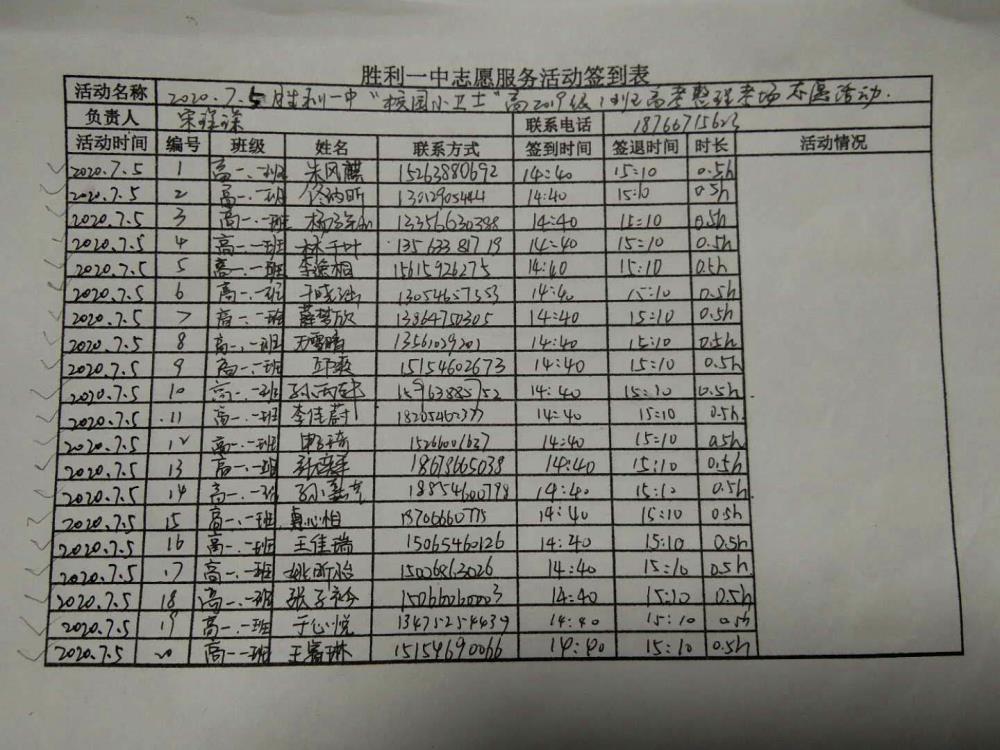 胜利一中志愿服务活动签到表
活动名称 2020.7.5胜利一中“校园小卫士”高2019级1班高考整理考场志愿活动.
负责人 联系电话
活动时间 编号 班级 姓名 联系方式 签到时间 签退时间 时长 活动情况
2020.7.5 1 高一.一班 朱风麒 15263880692 14:40 15:10 0.5h
2020.7.5 2 高一.一班 14:40 15:10 0.5h
2020.7.5 3 高一.一班 13356630398 14:40 15:10 0.5h
2020.7.5 4 高一一班 林千叶 13563381719 14:40 15:10 0.5h
2020.7.5 5 高一.一班 李逸桐 15615926275 14:40 15:10 0.5h
2020.7.5 6 高一.一班 13054657353 14:40 15:10 0.5h
2020.7.5 7 高一.一班 薛梦欣 13864750305 14:40 15:10 0.5h
2020.7.5 8 高一.一班 13561029201 14:40 15:10 0.5h
2020.7.5 9 高一.一班 15154602673 14:40 15:10 0.5h
2020.7.5 10 高一.一班 15963885752 14:40 15:10 0.5h
2020.7.5 11 高一.一班 李佳蔚 14:40 15:10 0.5h
2020.7.5 12 高一.一班 15266001637 14:40 15:10 0.5h
2020.7.5 13 高一.一班 18678665038 14:40 15:10 0.5h
2020.7.5 14 高一.一班 18854600798 14:40 15:10 0.5h
2020.7.5 15 高一.一班 18706660775 14:40 15:10 0.5h
2020.7.5 16 高一.一班 王佳瑞 15065460126 14:40 15:10 0.5h
2020.7.5 17 高一.一班 姚昕怡 15006863026 14:40 15:10 0.5h
2020.7.5 18 高一.一班 张子衿 15066060003 14:40 15:10 0.5h
2020.7.5 19 高一.一班 于心悦 13475254439 14:40 15:10 0.5h
2020.7.5 20 高一一班 15154690066 14:40 15:10 0.5h